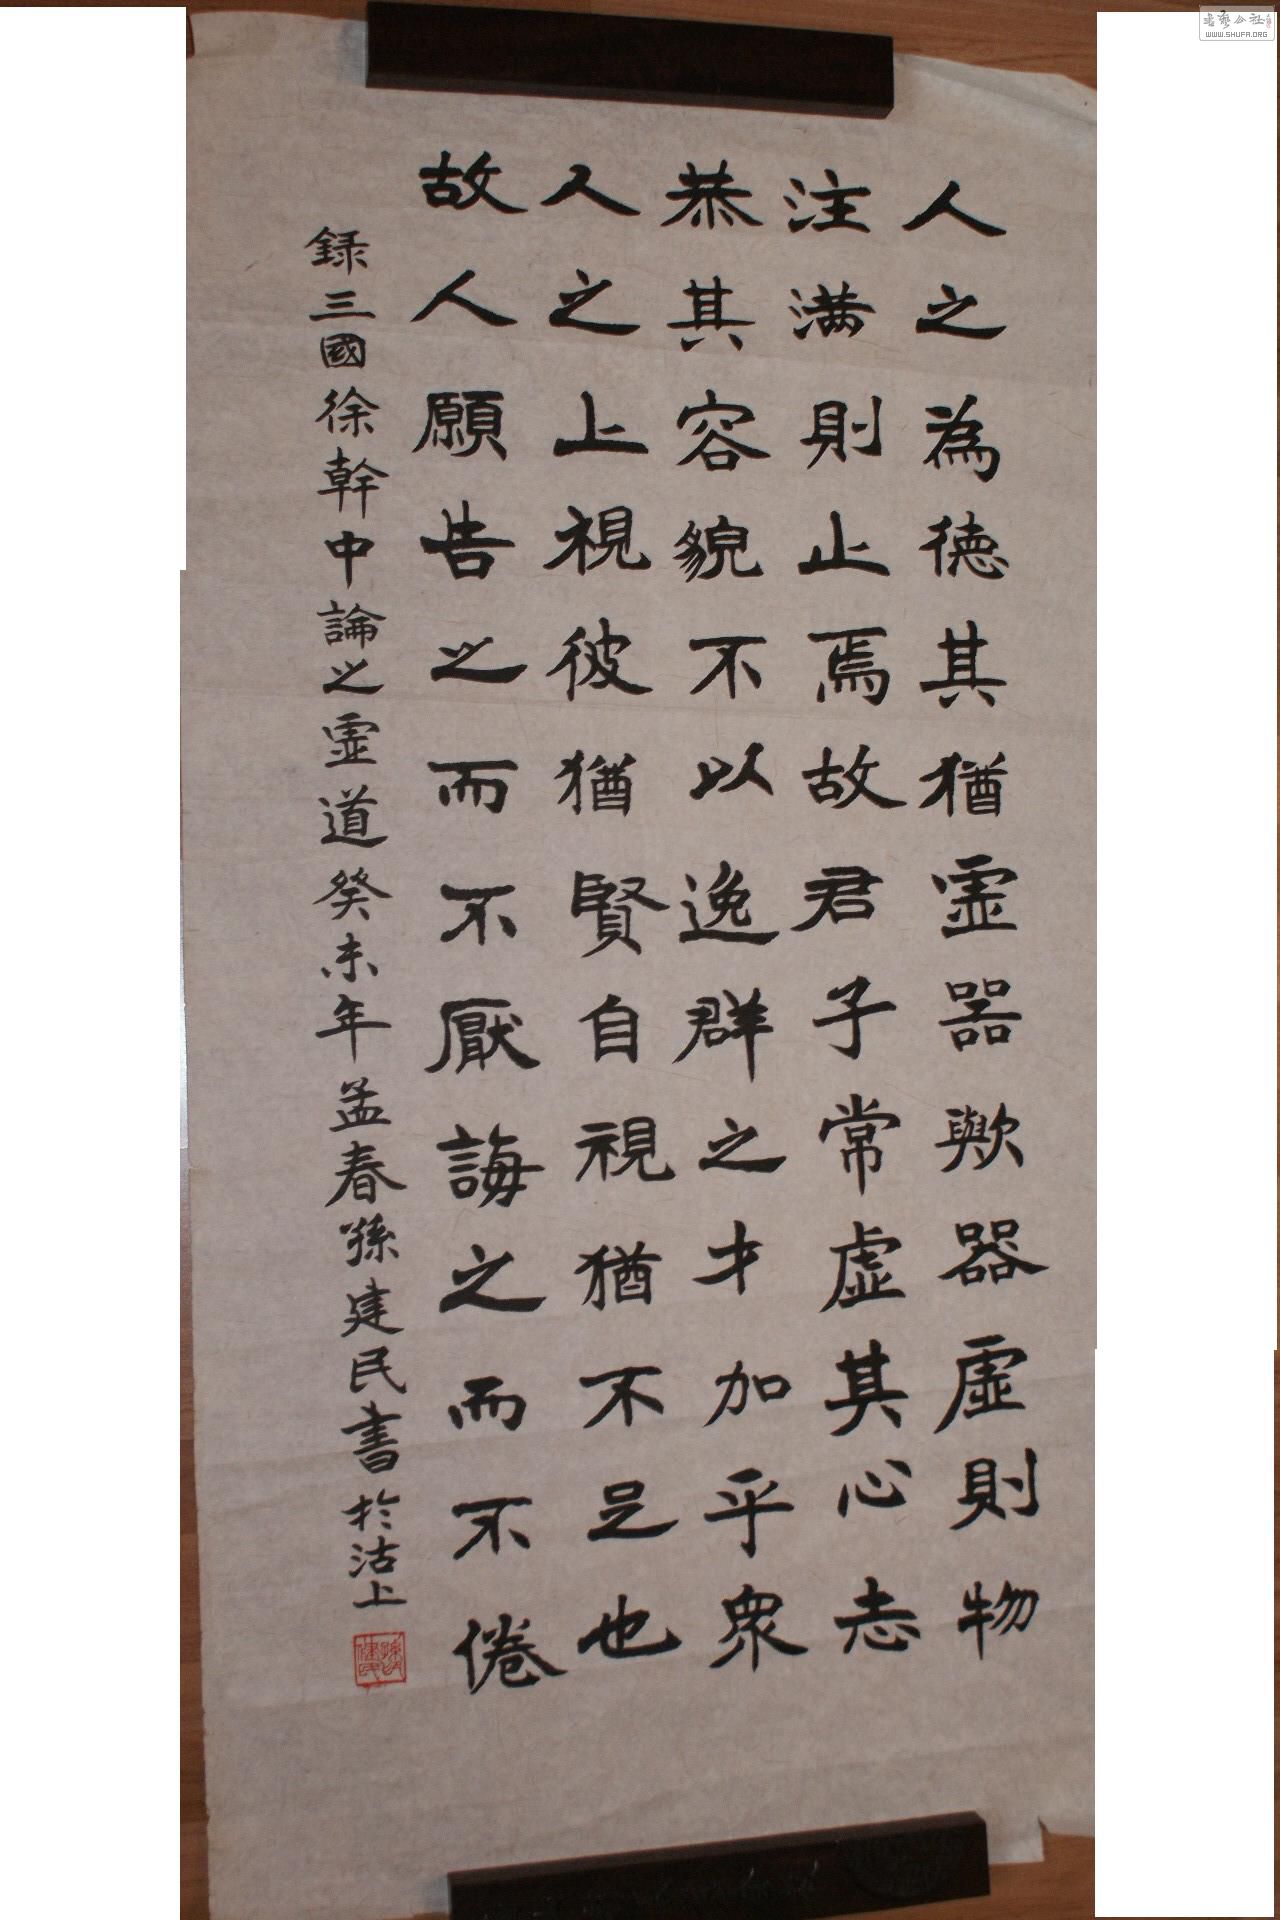 人之為德其猶虛器歟器虛則物
注满則止焉故君子常虚其心志
恭其容貌不以逸群之才加乎衆
人之上視彼猶賢自視猶不足也
故人願告之而不厭誨之而不倦
録三國徐幹中論之虛道癸未年孟春孫建民書於沽上
WWW.SHUFA.ORG